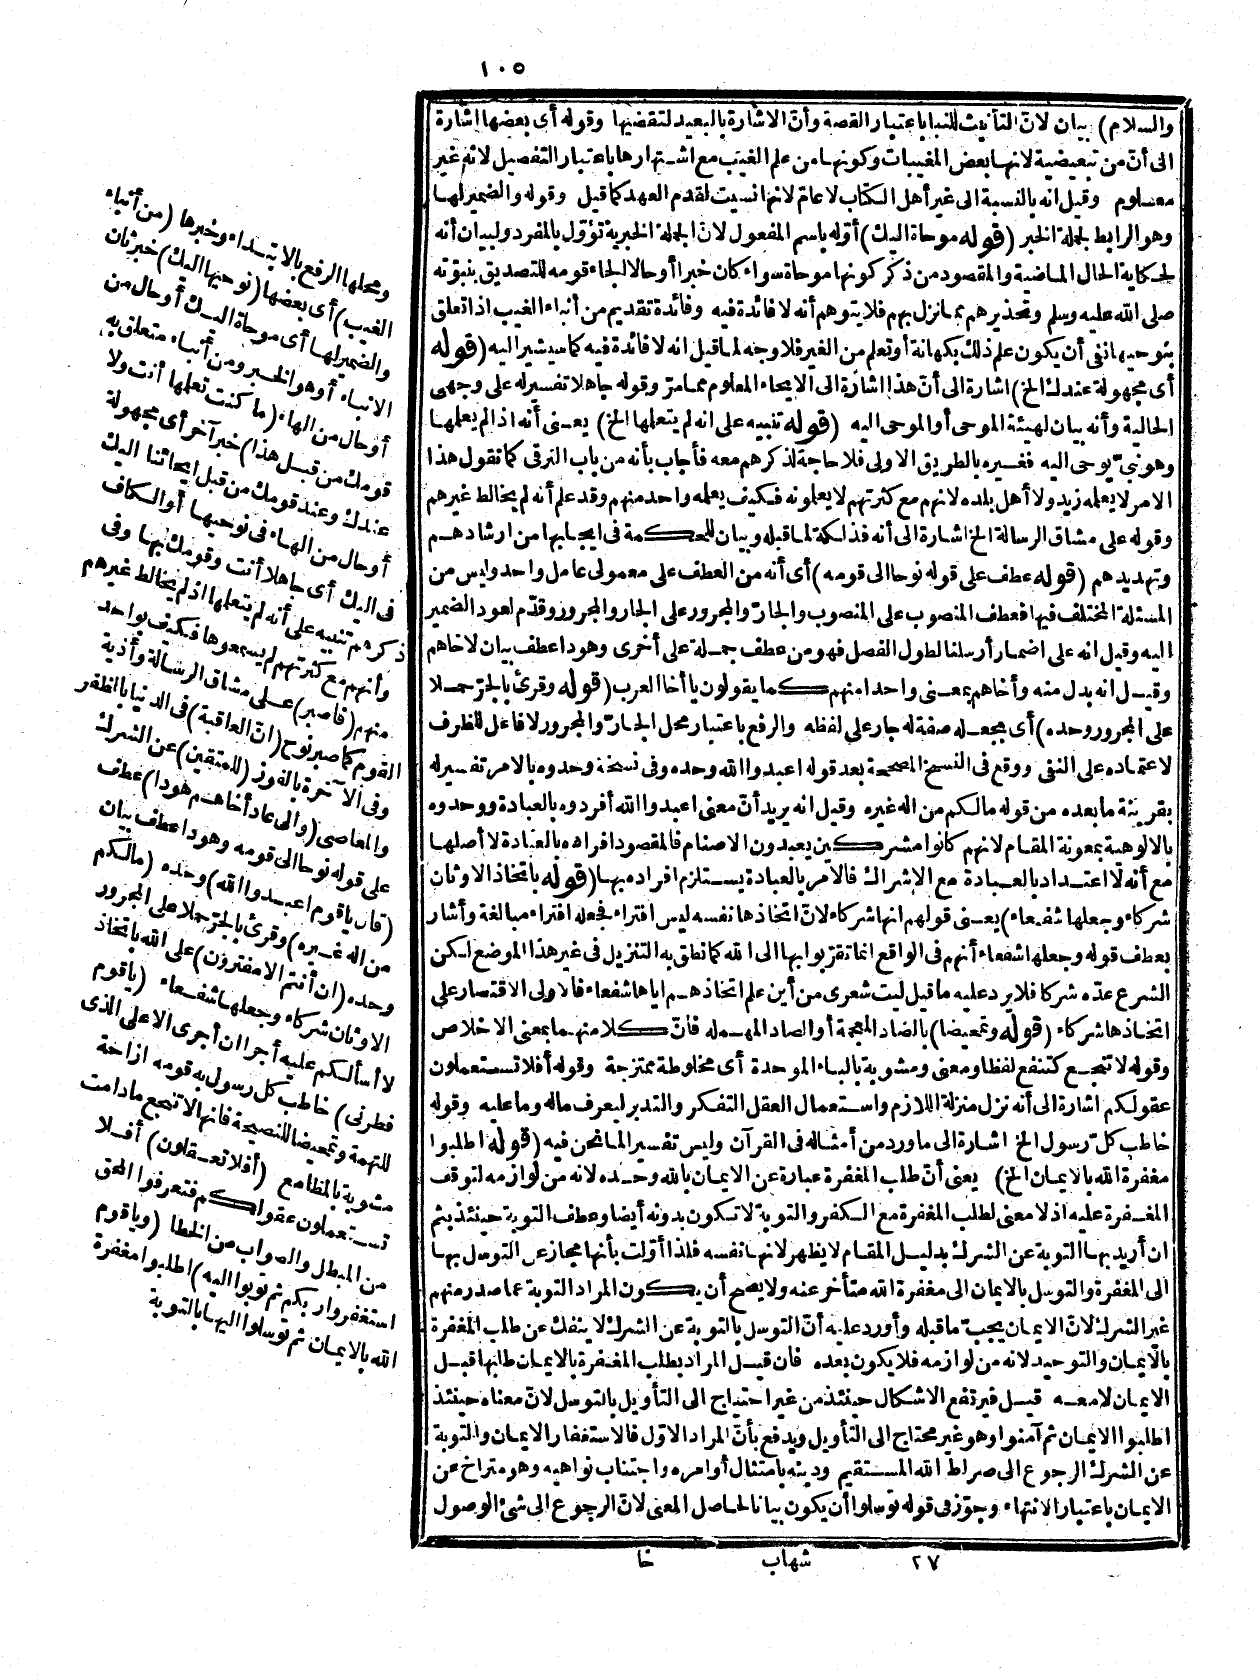 ١٠٥
والسلام) بيان لانّ التأنيث للنبا باعتبار القصة وأنّ الاشارة بالبعيد لتقضيها وقوله أى بعضها اشارة
الى أنّ من تبعيضية لانها بعض المغيبات وكونها من علم الغيب مع اشتهارها باعتبار التفصيل لانه غير
معلوم وقيل انه بالنسبة الى غير أهل الكتاب لا عامّ لانها انسيت لقدم العهد كما قيل وقوله والضمير لها
وهو الرابط لجملة الخبر (قوله موحاة اليك) أوّله باسم المفعول لانّ الجملة الخبرية تؤوّل بالمفرد ولبيان أنه
لحكاية الحال الماضية والمقصود من ذكر كونها موحاة سواء كان خبرا أو حالا الجاء قومه للتصديق بنبوّته
صلى الله عليه وسلم وتحذيرهم بما نزل بهم فلا يتوهم أنه لا فائدة فيه وفائدة تقديم من أنباء الغيب اذا تعلق
بنوحيها نفى أن يكون علم ذلك بكهانة أو تعلم من الغير فلا وجه لما قيل انه لا فائدة فيه كما سيشير اليه (قوله
أى مجهولة عندك الخ) اشارة الى أنّ هذا اشارة الى الايحاء المعلوم مما مرّ وقوله جاهلا تفسيره على وجهى
الحالية وأنه بيان لهيئة الموحى أو الموحى اليه (قوله تنبيه على انه لم يتعلها الخ) يعنى أنه اذا لم يعلمها
وهو نبىّ يوحى اليه فغيره بالطريق الاولى فلا حاجة لذكرهم معه فأجاب بأنه من باب الترقى كما تقول هذا
الامر لا يعلمه زيد ولا أهل بلده لانهم مع كثرتهم لا يعلمونه فكيف يعلمه واحد منهم وقد علم أنه لم يخالط غيرهم
وقوله على مشاق الرسالة الخ اشارة الى أنه فذلكة لما قبله وبيان للحكمة فى ايجابها من ارشادهم
وتهديدهم (قوله عطف على قوله نوحا الى قومه) أى أنه من العطف على معمولى عامل واحد وليس من
المسئلة المختلف فيها فعطف المنصوب على المنصوب والجارّ والمجرور على الجار والمجرور وقدّم لعود الضمير
اليه وقيل انه على اضمار أرسلنا لطول الفصل فهو من عطف جملة على أخرى وهودا عطف بيان لاخاهم
وقيل انه بدل منه وأخاهم بمعنى واحدا منهم كما يقولون يا أخا العرب (قوله وقرئ بالجرّ حملا
على المجرور وحده) أى بجعله صفة له جار على لفظه والرفع باعتبار محل الجارّ والمجرور لا فاعل للظرف
لاعتماده على النفى ووقع فى النسخ المصححة بعد قوله اعبدوا الله وحده وفى نسخة وحدوه بالامر تفسيره
بقرينة ما بعده من قوله مالكم من اله غيره وقيل انه يريد أنّ معنى اعبدوا الله أفردوه بالعبادة ووحدوه
بالالوهية بمعونة المقام لانهم كانوا مشركين يعبدون الاصنام فالمقصود افراده بالعبادة لا أصلها
مع أنه لا اعتداد بالعبادة مع الاشراك فالامر بالعبادة يستلزم افراده بها (قوله باتخاذ الاوثان
شركاء وجعلها شفعاء) يعنى قولهم انها شركاء لانّ اتخاذها نفسه ليس افتراء فجعله افتراء مبالغة وأشار
بعطف قوله وجعلها شفعاء أنهم فى الواقع انما تقرّبوا بها الى الله كما نطق به التنزيل فى غير هذا الموضع لكن
الشرع عدّه شركا فلا يرد عليه ما قيل ليت شعرى من أين علم اتخاذهم اياها شفعاء فالاولى الاقتصار على
اتخاذها شركاء (قوله وتمحيضا) بالضاد المعجمة أو الصاد المهملة فانّ كلا منهما بمعنى الاخلاص
وقوله لا تنجع كتنفع لفظا ومعنى ومشوبة بالباء الموحدة أى مخلوطة ممتزجة وقوله أفلا تستعملون
عقولكم اشارة الى أنه نزل منزلة اللازم واستعمال العقل التفكر والتدبر ليعرف ماله وما عليه وقوله
خاطب كلّ رسول الخ اشارة الى ما ورد من أمثاله فى القرآن وليس تفسيرا لما نحن فيه (قوله اطلبوا
مغفرة الله بالايمان الخ) يعنى أنّ طلب المغفرة عبارة عن الايمان بالله وحده لانه من لوازمه لتوقف
المغفرة عليه اذ لا معنى لطلب المغفرة مع الكفر والتوبة لا تكون بدونه أيضا وعطف التوبة حينئذ بثم
ان أريد بها التوبة عن الشرك بدليل المقام لا يظهر لانها نفسه فلذا أوّلت بأنها مجاز عن التوسل بها
الى المغفرة والتوسل بالايمان الى مغفرة الله متأخر عنه ولا يصح أن يكون المراد التوبة عما صدر منهم
غير الشرك لانّ الايمان يجبّ ما قبله وأورد عليه أنّ التوسل بالتوبة عن الشرك لا ينفك عن طلب المغفرة
بالايمان والتوحيد لانه من لوازمه فلا يكون بعده فان قيل المراد بطلب المغفرة بالايمان طلبها قبل
الايمان لا معه قيل فيرتفع الاشكال حينئذ من غير احتياج الى التأويل بالتوسل لانّ معناه حينئذ
اطلبوا الايمان ثم آمنوا وهو غير محتاج الى التأويل ويدفع بأنّ المراد الاوّل فالاستغفار الايمان والتوبة
عن الشرك الرجوع الى صراط الله المستقيم ودينه بامتثال أوامره واجتناب نواهيه وهو متراخ عن
الايمان باعتبار الانتهاء وجوّز فى قوله توسلوا أن يكون بيانا لحاصل المعنى لانّ الرجوع الى شئ الوصول
ومحلها الرفع بالابتداء وخبرها (من أنباء
الغيب) أى بعضها (نوحيها اليك) خبر ثان
والضمير لها أى موحاة اليك أو حال من
الانباء أو هو الخبر ومن أنباء متعلق به
أو حال من الهاء (ما كنت تعلمها أنت ولا
قومك من قبل هذا) خبر آخر أى مجهولة
عندك وعند قومك من قبل ايحائنا اليك
أو حال من الهاء فى نوحيها أو الكاف
فى اليك أى جاهلا أنت وقومك بها وفى
ذكرهم تنبيه على أنه لم يتعلها اذ لم يخالط غيرهم
وأنهم مع كثرتهم لم يسمعوها فكيف بواحد
منهم (فاصبر) على مشاق الرسالة وأذية
القوم كما صبر نوح (انّ العاقبة) فى الدنيا بالظفر
وفى الآخرة بالفوز (للمتقين) عن الشرك
والمعاصى (والى عاد أخاهم هودا) عطف
على قوله نوحا الى قومه وهودا عطف بيان
(قال يا قوم اعبدوا الله) وحده (مالكم
من اله غيره) وقرئ بالجرّ حملا على المجرور
وحده (ان أنتم الا مفترون) على الله باتخاذ
الاوثان شركاء وجعلها شفعاء (يا قوم
لا أسألكم عليه أجرا ان أجرى الا على الذى
فطرنى) خاطب كل رسول به قومه ازاحة
للتهمة وتمحيضا للنصيحة فانها لا تنجع ما دامت
مشوبة بالمطامع (أفلا تعقلون) أفلا
تستعملون عقولكم فتعرفوا المحق
من المبطل والصواب من الخطا (ويا قوم
استغفروا ربكم ثم توبوا اليه) اطلبوا مغفرة
الله بالايمان ثم توسلوا اليها بالتوبة
٢٧ شهاب خا